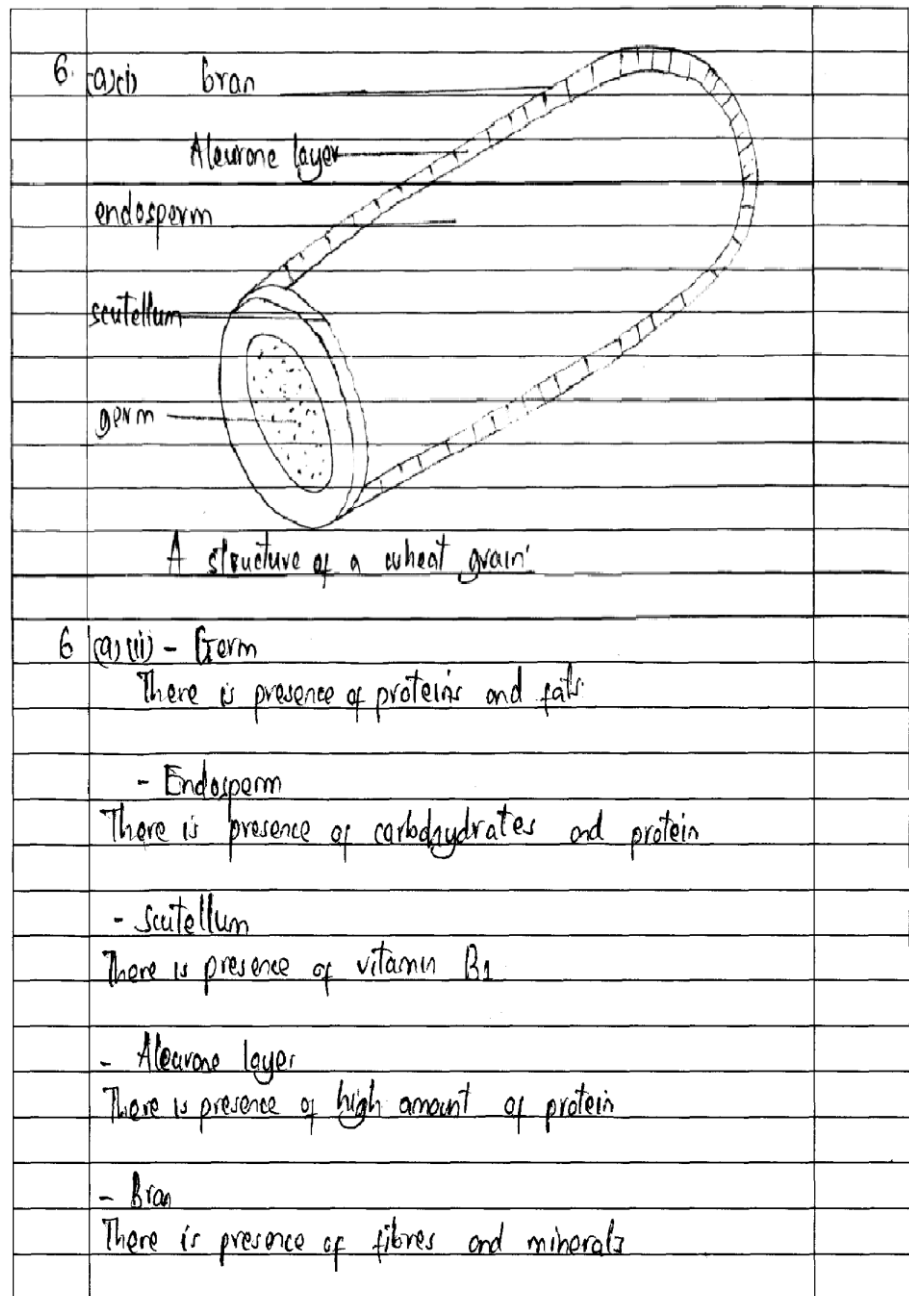 6. (a)(i) bran
Aleurone layer
endosperm
scutellum
germ
A structure of a wheat grain
6 (a)(ii) - Germ
There is presence of proteins and fats.
- Endosperm
There is presence of carbohydrates and protein
- Scutellum
There is presence of vitamin B1
- Aleurone layer
There is presence of high amount of protein
- Bran
There is presence of fibres and minerals